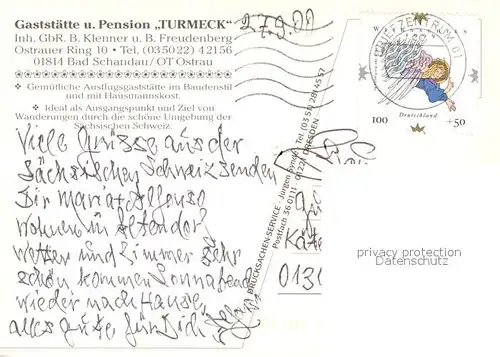 Gaststätte u. Pension „TURMECK"
Inh. GbR. B. Klenner u. B. Freudenberg
Ostrauer Ring 10 • Tel. (03 50 22) 4 21 56
01814 Bad Schandau/OT Ostrau
Gemütliche Ausflugsgaststätte im Baudenstil
und mit Hausmannskost.
Ideal als Ausgangspunkt und Ziel von
Wanderungen durch die schöne Umgebung der
Sächsischen Schweiz.
27.9.00
Viele Grüsse aus der
Sächsischen Schweiz senden
Dir Maria + Alfonso
wohnen in Altendorf
Wetter und Zimmer sehr
schön kommen Sonnabend
wieder nach Hause,
alles gute für Dich
DRUCKSACHEN-SERVICE Jürgen
Postfach 36 01 11 · 01221 DRESDEN
BRIEFZENTRUM 01
100
Deutschland
+50
privacy protection
Datenschutz